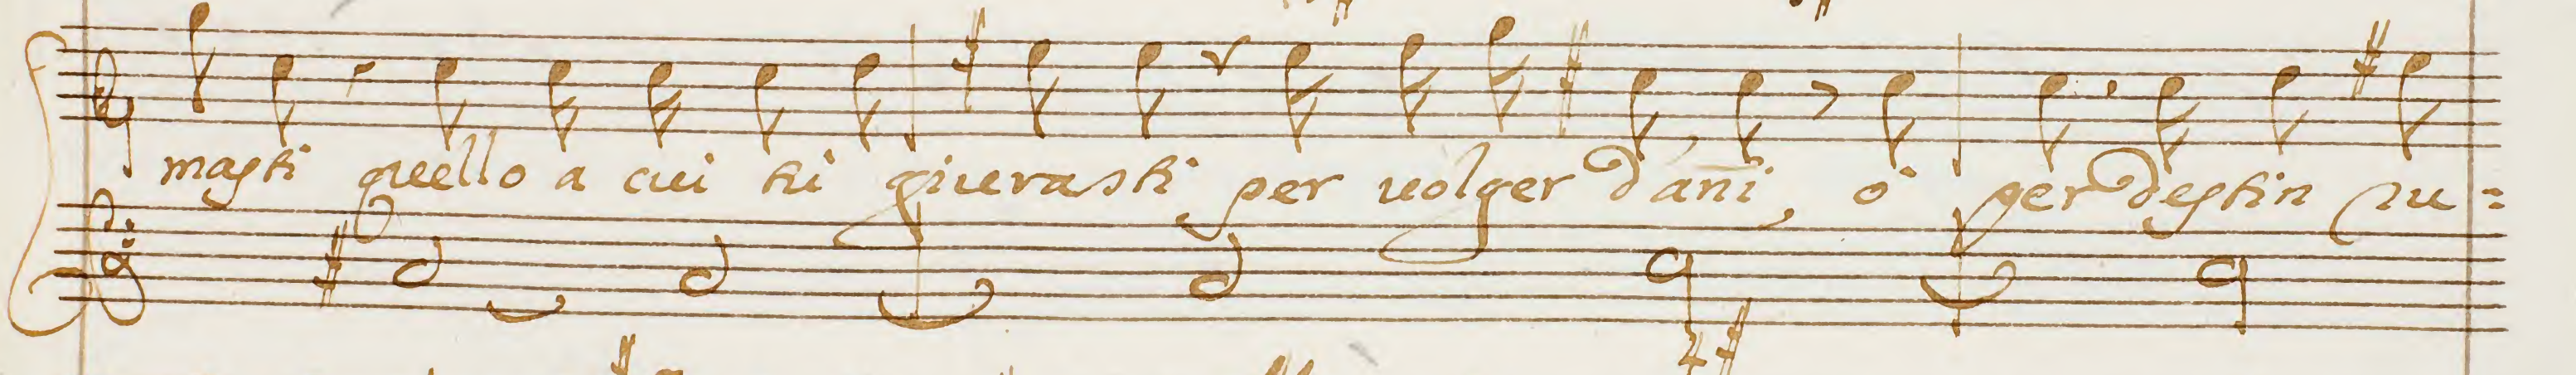 masti quello a cui ti giurasti per uolger d'añi, o' per destin ru=